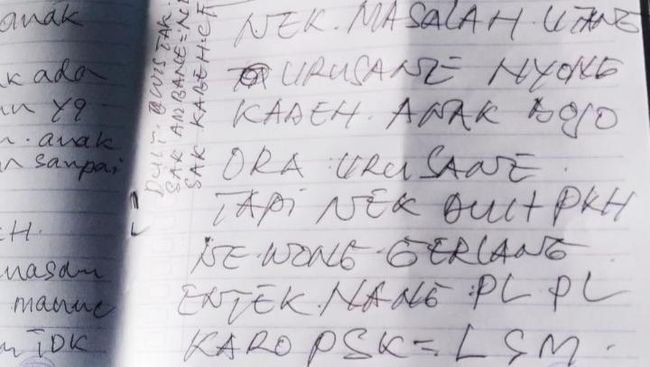 anak
ada
yg
anak
sanpai
TDK
DUIT. WIS TAK
SAK AMBANE=
SAK KABEH=
NEK. MASALAH UTANG
URUSANE NYONG
KABEH. ANAK BOJO
ORA URUSANE.
TAPI NEK DUIT PKH
NE WONG GERLANG
ENTEK. NANG PL PL
KARO PSK = LSM.